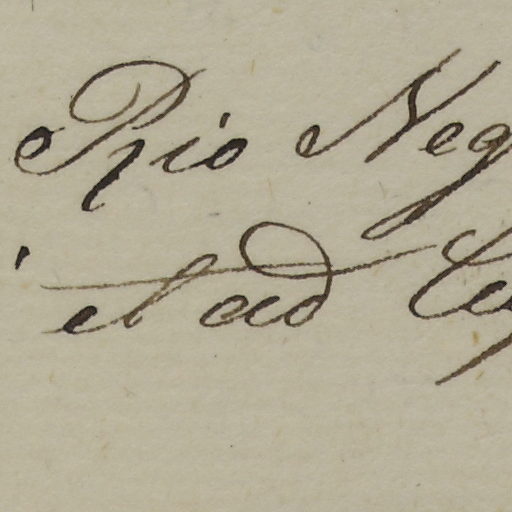 Rio Neg
et ad